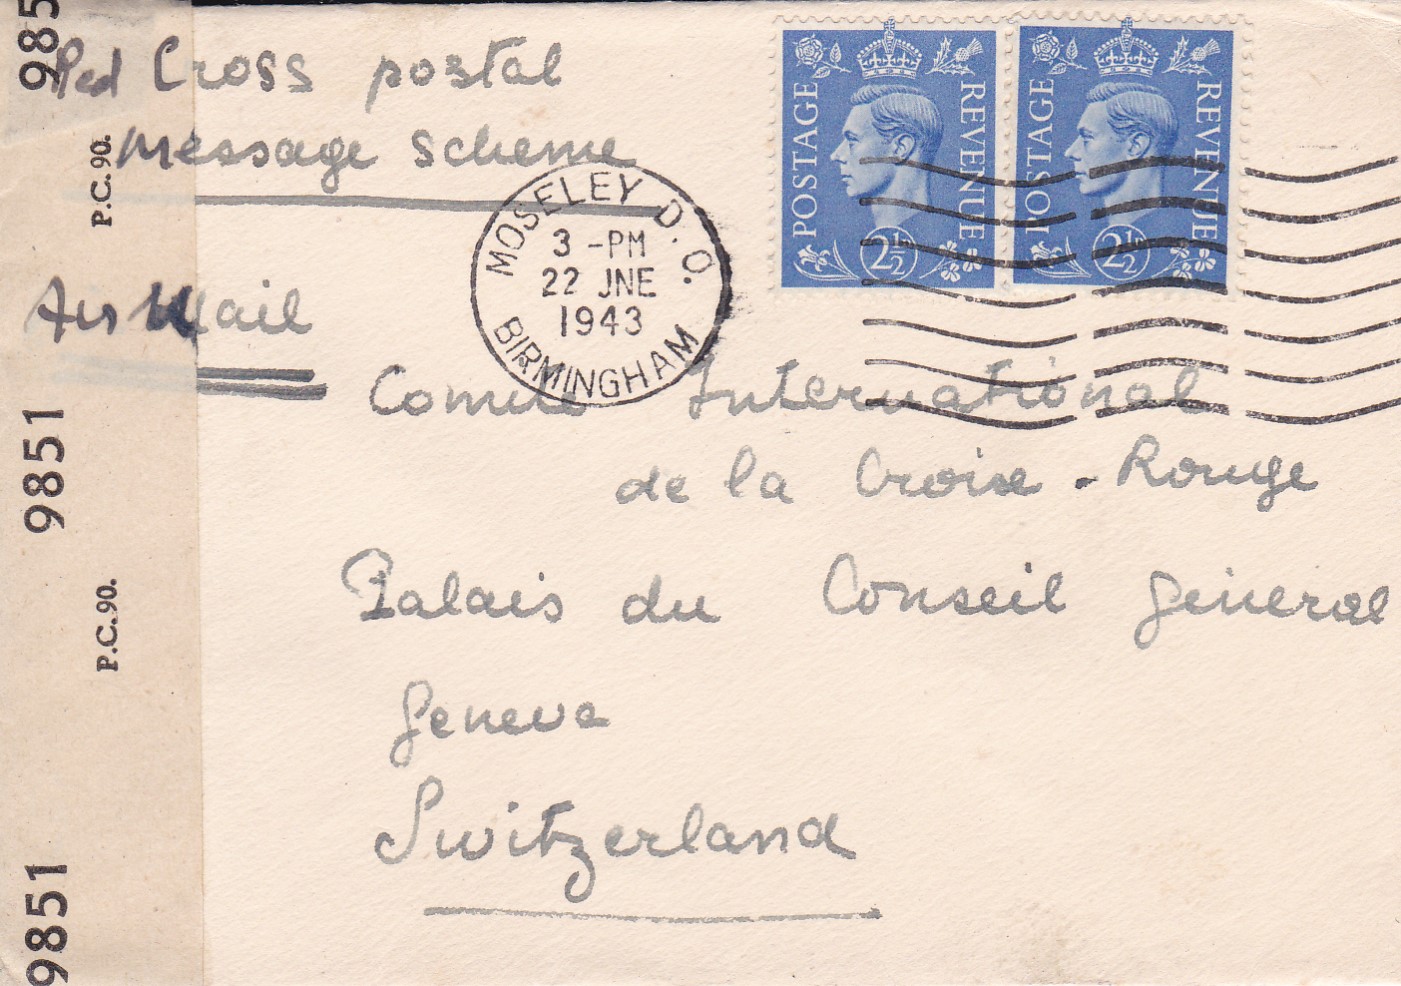 Red Cross postal
message scheme
Air Mail
POSTAGE REVENUE
2½
POSTAGE REVENUE
2½
MOSELEY D.O.
3 -PM
22 JNE
1943
BIRMINGHAM
Comité International
de la Croise - Rouge
Palais du Conseil général
Geneva
Switzerland
985
P.C.90.
9851
P.C.90.
9851